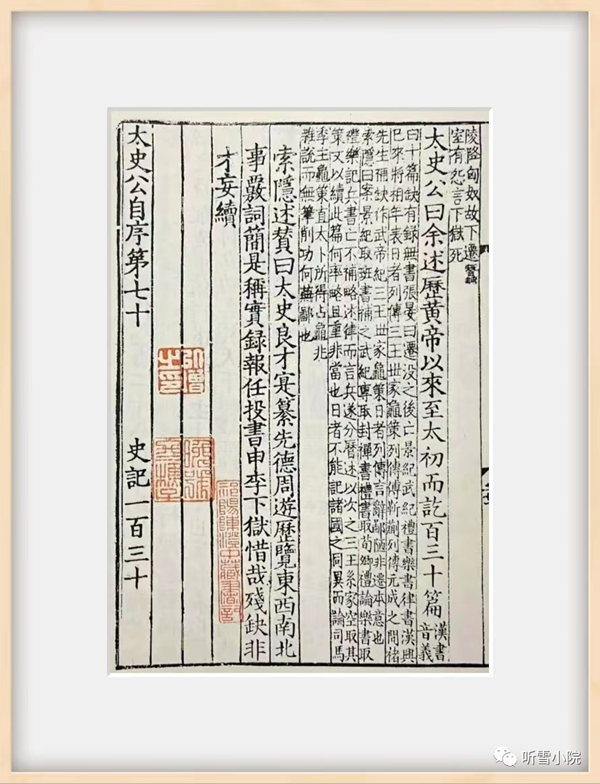 陵降匈奴故下遷蠶
室有怨言下獄死
太史公曰余述歷黄帝以來至太初而訖百三十篇
漢書
音義
曰十篇缺有録無書張晏曰遷没之後亡景紀武紀禮書樂書律書漢興
已來將相年表日者列傳三王世家龜策列傳傅靳蒯列傳元成之間褚
先生補缺作武帝紀三王世家龜策日者列傳言辭鄙陋非遷本意也
索隱曰案景紀取班書補之武紀專取封禪書禮書取荀卿禮論樂書取
禮樂記兵書亡不補略述律而言兵遂分曆述以次之三王系家空取其
策文以續此篇何率略且重非當也日者不能記諸國之同異而論司馬
季主龜策直太卜所得占龜兆
雜説而無筆削功何蕪鄙也
索隱述賛曰太史良才寔纂先德周遊歷覽東西南北
事覈詞簡是稱實録報任投書申李下獄惜哉殘缺非
才妄續
祁陽陳澄中藏書記
太史公自序第七十 史記一百三十
听雪小院